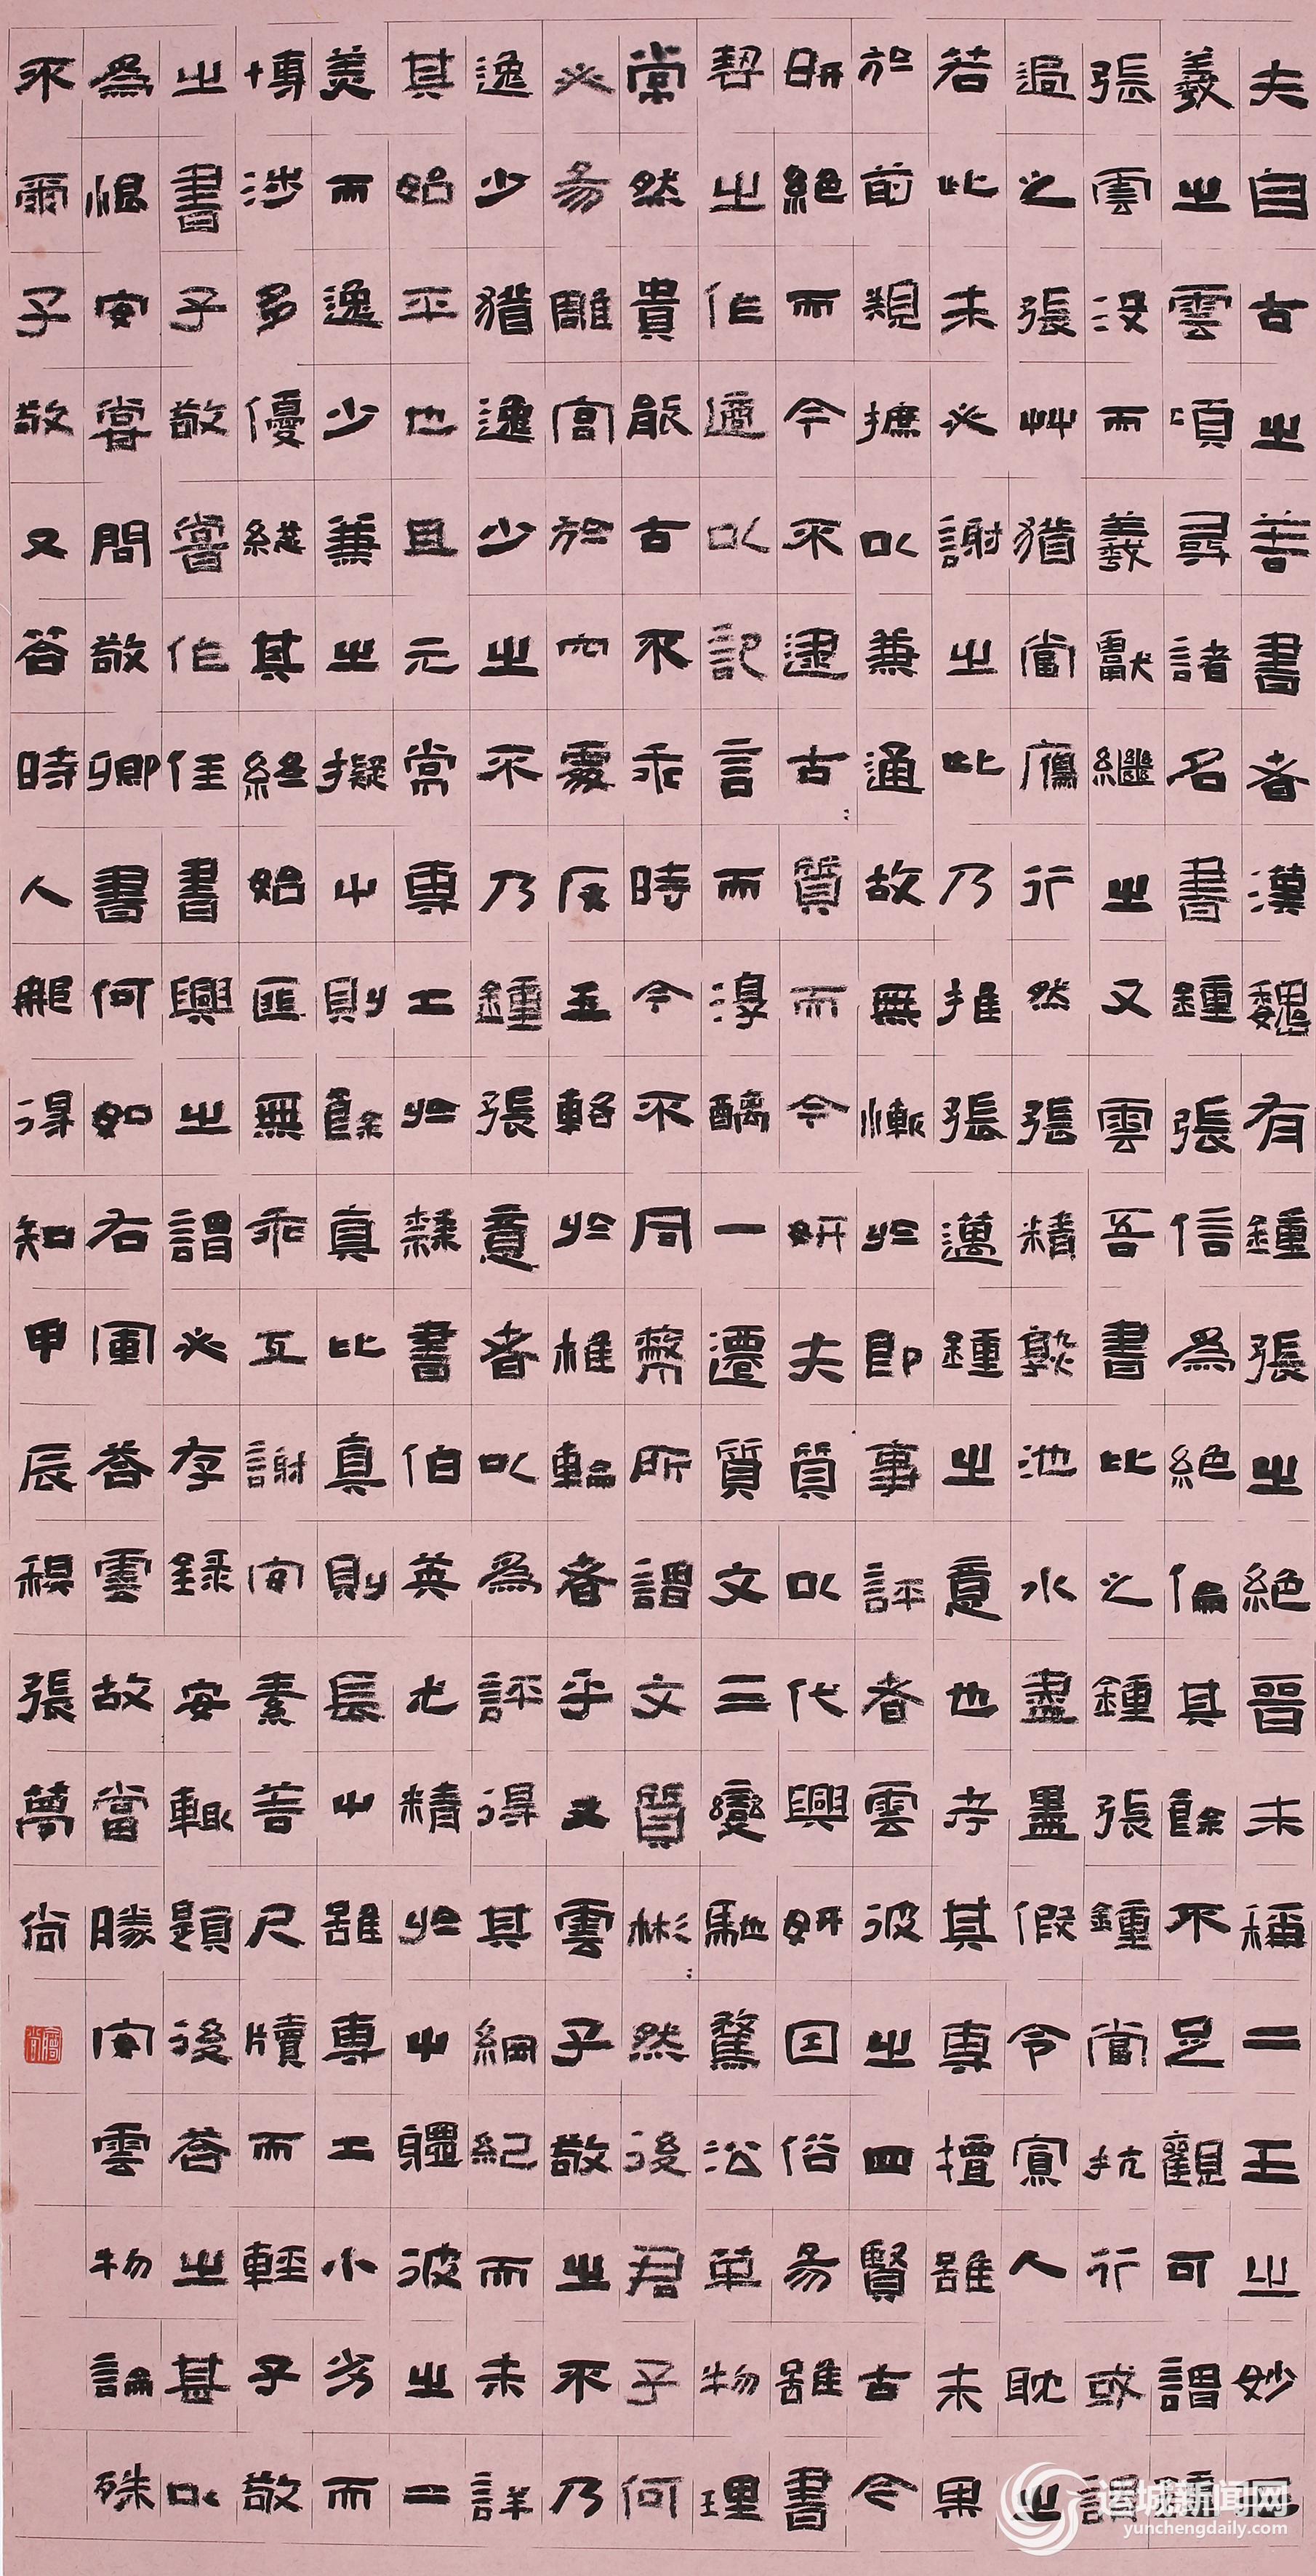 夫自古之善書者漢魏有鍾張之絕晉末稱二王之妙王
羲之雲頃尋諸名書鍾張信為絕倫其餘不足觀可謂鍾
張雲沒而羲獻繼之又雲吾書比之鍾張鍾當抗行或謂
過之張艸猶當鴈行然張精熟池水盡墨假令寡人耽之
若此未必謝之此乃推張邁鍾之意也考其專擅雖未果
於前規摭以兼通故無慚於即事評者雲彼之四賢古今
絕而今不逮古質而今妍夫質以代興妍因俗易雖書
契之作適以記言而淳醨一遷質文三變馳騖沿革物理
常然貴能古不乖時今不同弊所謂文質彬〻然後君子何
必易雕宮於穴處反玉輅於椎輪者乎又雲子敬之不乃
逸少猶逸少之不乃鍾張意者以為評得其綱紀而未詳
其始平也且元常專工於隸書伯英尤精於屮體彼之二
美而逸少兼之擬屮則餘真比真則長屮雖專工小劣而
博涉多優總其終始匪無乖互謝安素善尺牘而輕子敬
之書子敬嘗作佳書與之謂必存錄安輒題後答之甚以
為恨安嘗問敬卿書何如右軍答雲故當勝安雲物論殊
不爾子敬又答時人那得知甲辰稷張萬尚
运城新闻网
yunchengdaily.com